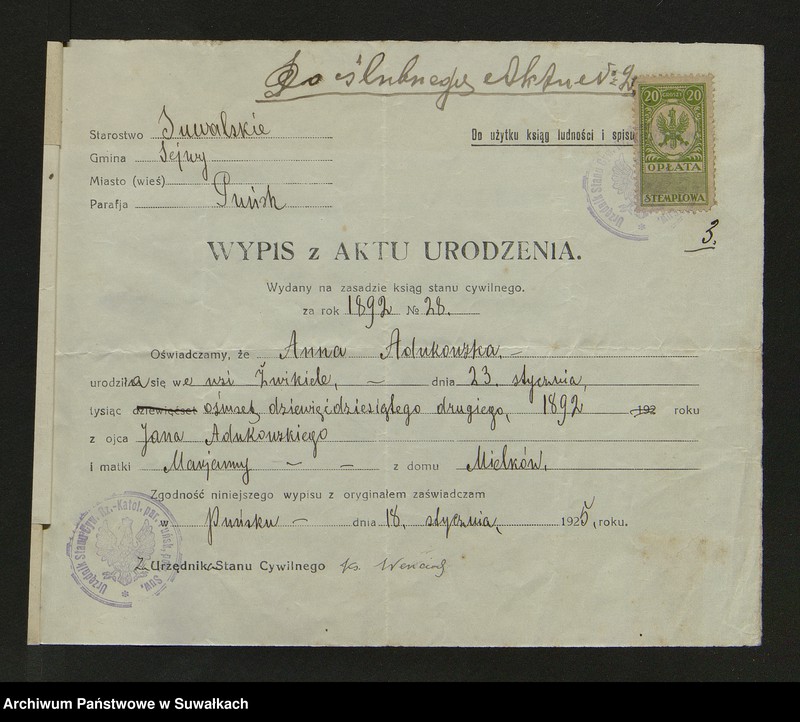 Do ślubnego Aktu № 2.
Starostwo Suwalskie
Gmina Sejwy
Miasto (wieś)
Parafja Puńsk
Do użytku ksiąg ludności i spisu
20 GROSZY 20
OPŁATA
STEMPLOWA
3.
WYPIS z AKTU URODZENIA.
Wydany na zasadzie ksiąg stanu cywilnego.
za rok 1892 № 28.
Oświadczamy, że Anna Adukowska, –
urodziła się we wsi Żwikiele, – dnia 23. stycznia,
tysiąc dziewięćset ośmset dziewięćdziesiątego drugiego, 1892 192 roku
z ojca Jana Adukowskiego
i matki Marjanny – – z domu Mielków,
Zgodność niniejszego wypisu z oryginałem zaświadczam
w Puńsku – dnia 18. stycznia, 1925, roku.
Urzędnik Stanu Cyw. Rz.-Katol. par. Puńsk, p. Suw.
Z Urzędnika Stanu Cywilnego ks.
Urzędnik Stanu
Archiwum Państwowe w Suwałkach